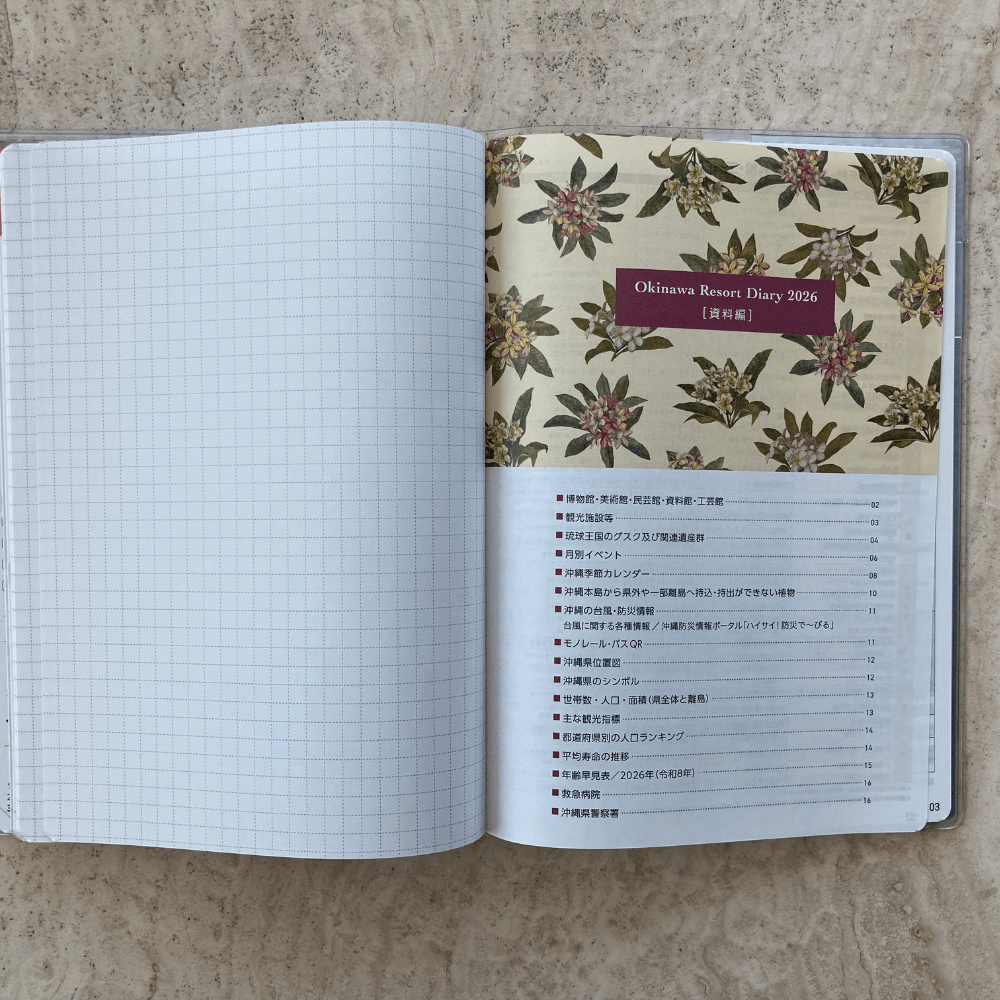 Okinawa Resort Diary 2026
[資料編]
■博物館・美術館・民芸館・資料館・工芸館 02
■観光施設等 03
■琉球王国のグスク及び関連遺産群 04
■月別イベント 06
■沖縄季節カレンダー 08
■沖縄本島から県外や一部離島へ持込・持出ができない植物 10
■沖縄の台風・防災情報 11
台風に関する各種情報／沖縄防災情報ポータル「ハイサイ!防災で〜びる」
■モノレール・バスQR 11
■沖縄県位置図 12
■沖縄県のシンボル 12
■世帯数・人口・面積(県全体と離島) 13
■主な観光指標 13
■都道府県別の人口ランキング 14
■平均寿命の推移 14
■年齢早見表／2026年(令和8年) 15
■救急病院 16
■沖縄県警察署 16
03